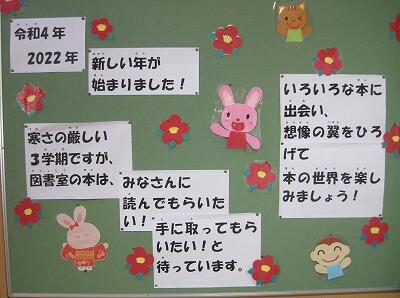 令和4年
2022年
新しい年が
始まりました！
寒さの厳しい
3学期ですが、
図書室の本は、
みなさんに
読んでもらいた
い！
手に取ってもら
いたい！と
待っています。
いろいろな本に
出会い、
想像の翼をひろ
げて
本の世界を楽し
みましょう！